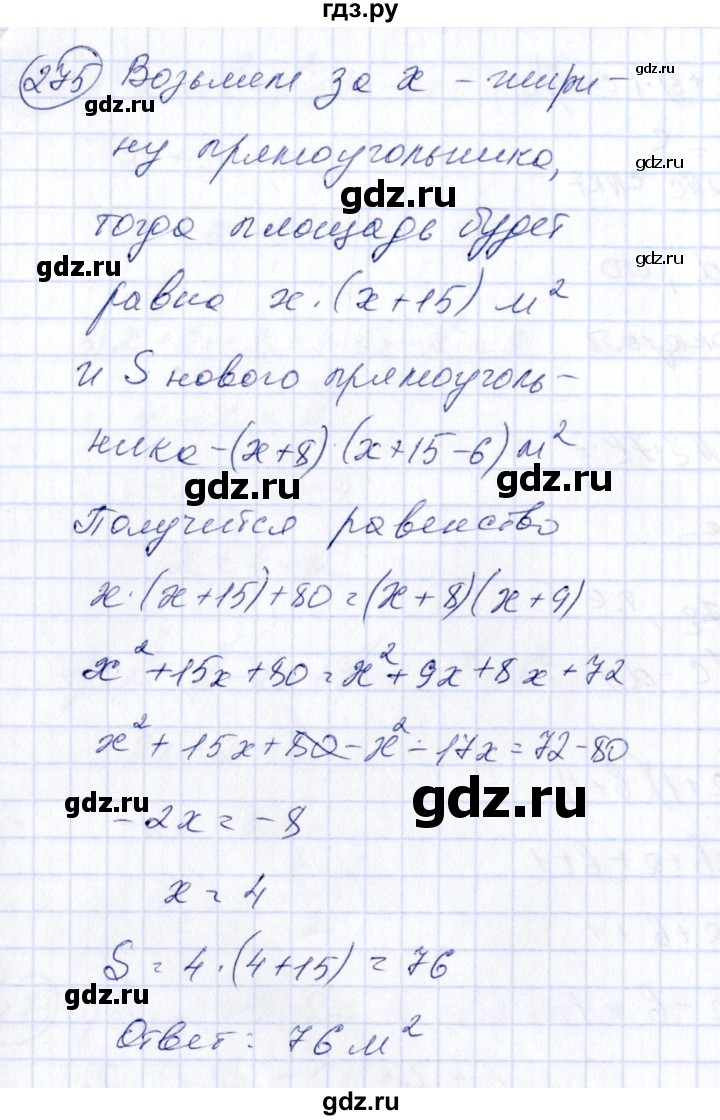 гдз.ру
275 Возьмем за x - шири-
ну прямоугольника,
тогда площадь будет
равна x·(x+15) м²
и S нового прямоуголь-
ника-(x+8)·(x+15-6) м²
Получится равенство
x·(x+15)+80=(x+8)(x+9)
x²+15x+80=x²+9x+8x+72
x²+15x+80-x²-17x=72-80
-2x=-8
x=4
S=4·(4+15)=76
Ответ: 76 м²
gdz.ru
gdz.ru
gdz.ru
gdz.ru
gdz.ru
gdz.ru
gdz.ru
gdz.ru
gdz.ru
gdz.ru
gdz.ru
gdz.ru
gdz.ru